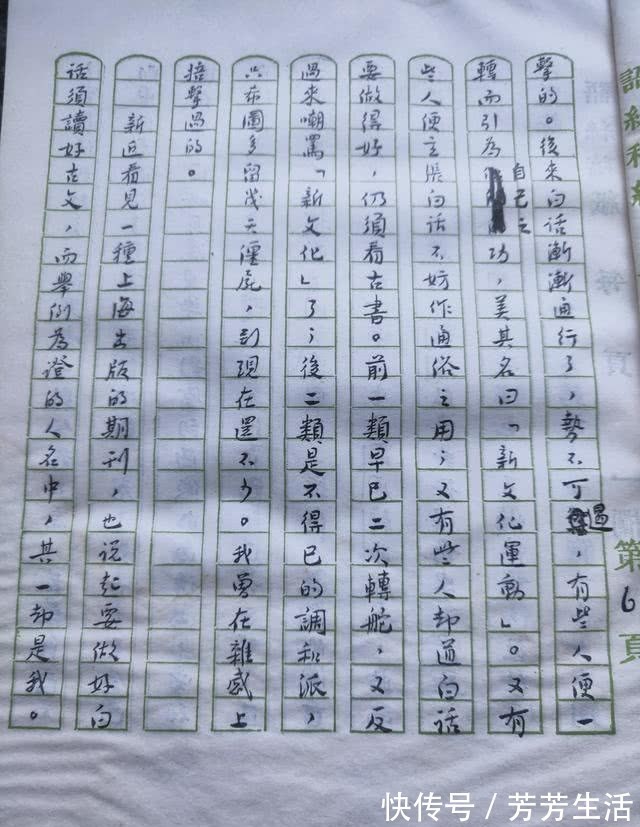 第6頁
擊的。後來白话漸漸通行了,勢不可遏,有些人便一
轉而引為自己之功,美其名曰「新文化運動」。又有
些人便主張白话不妨作通俗之用;又有些人却道白話
要做得好,仍須看古書。前一類早已二次轉舵,又反
過來嘲罵「新文化」了;後二類是不得已的調和派,
只希圖多留幾天僵屍,到現在還不少。我曾在雜感上
掊擊過的。
新近看見一種上海出版的期刊,也说起要做好白
话須讀好古文,而舉例為證的人名中,其一却是我。
快传号/芳芳生活